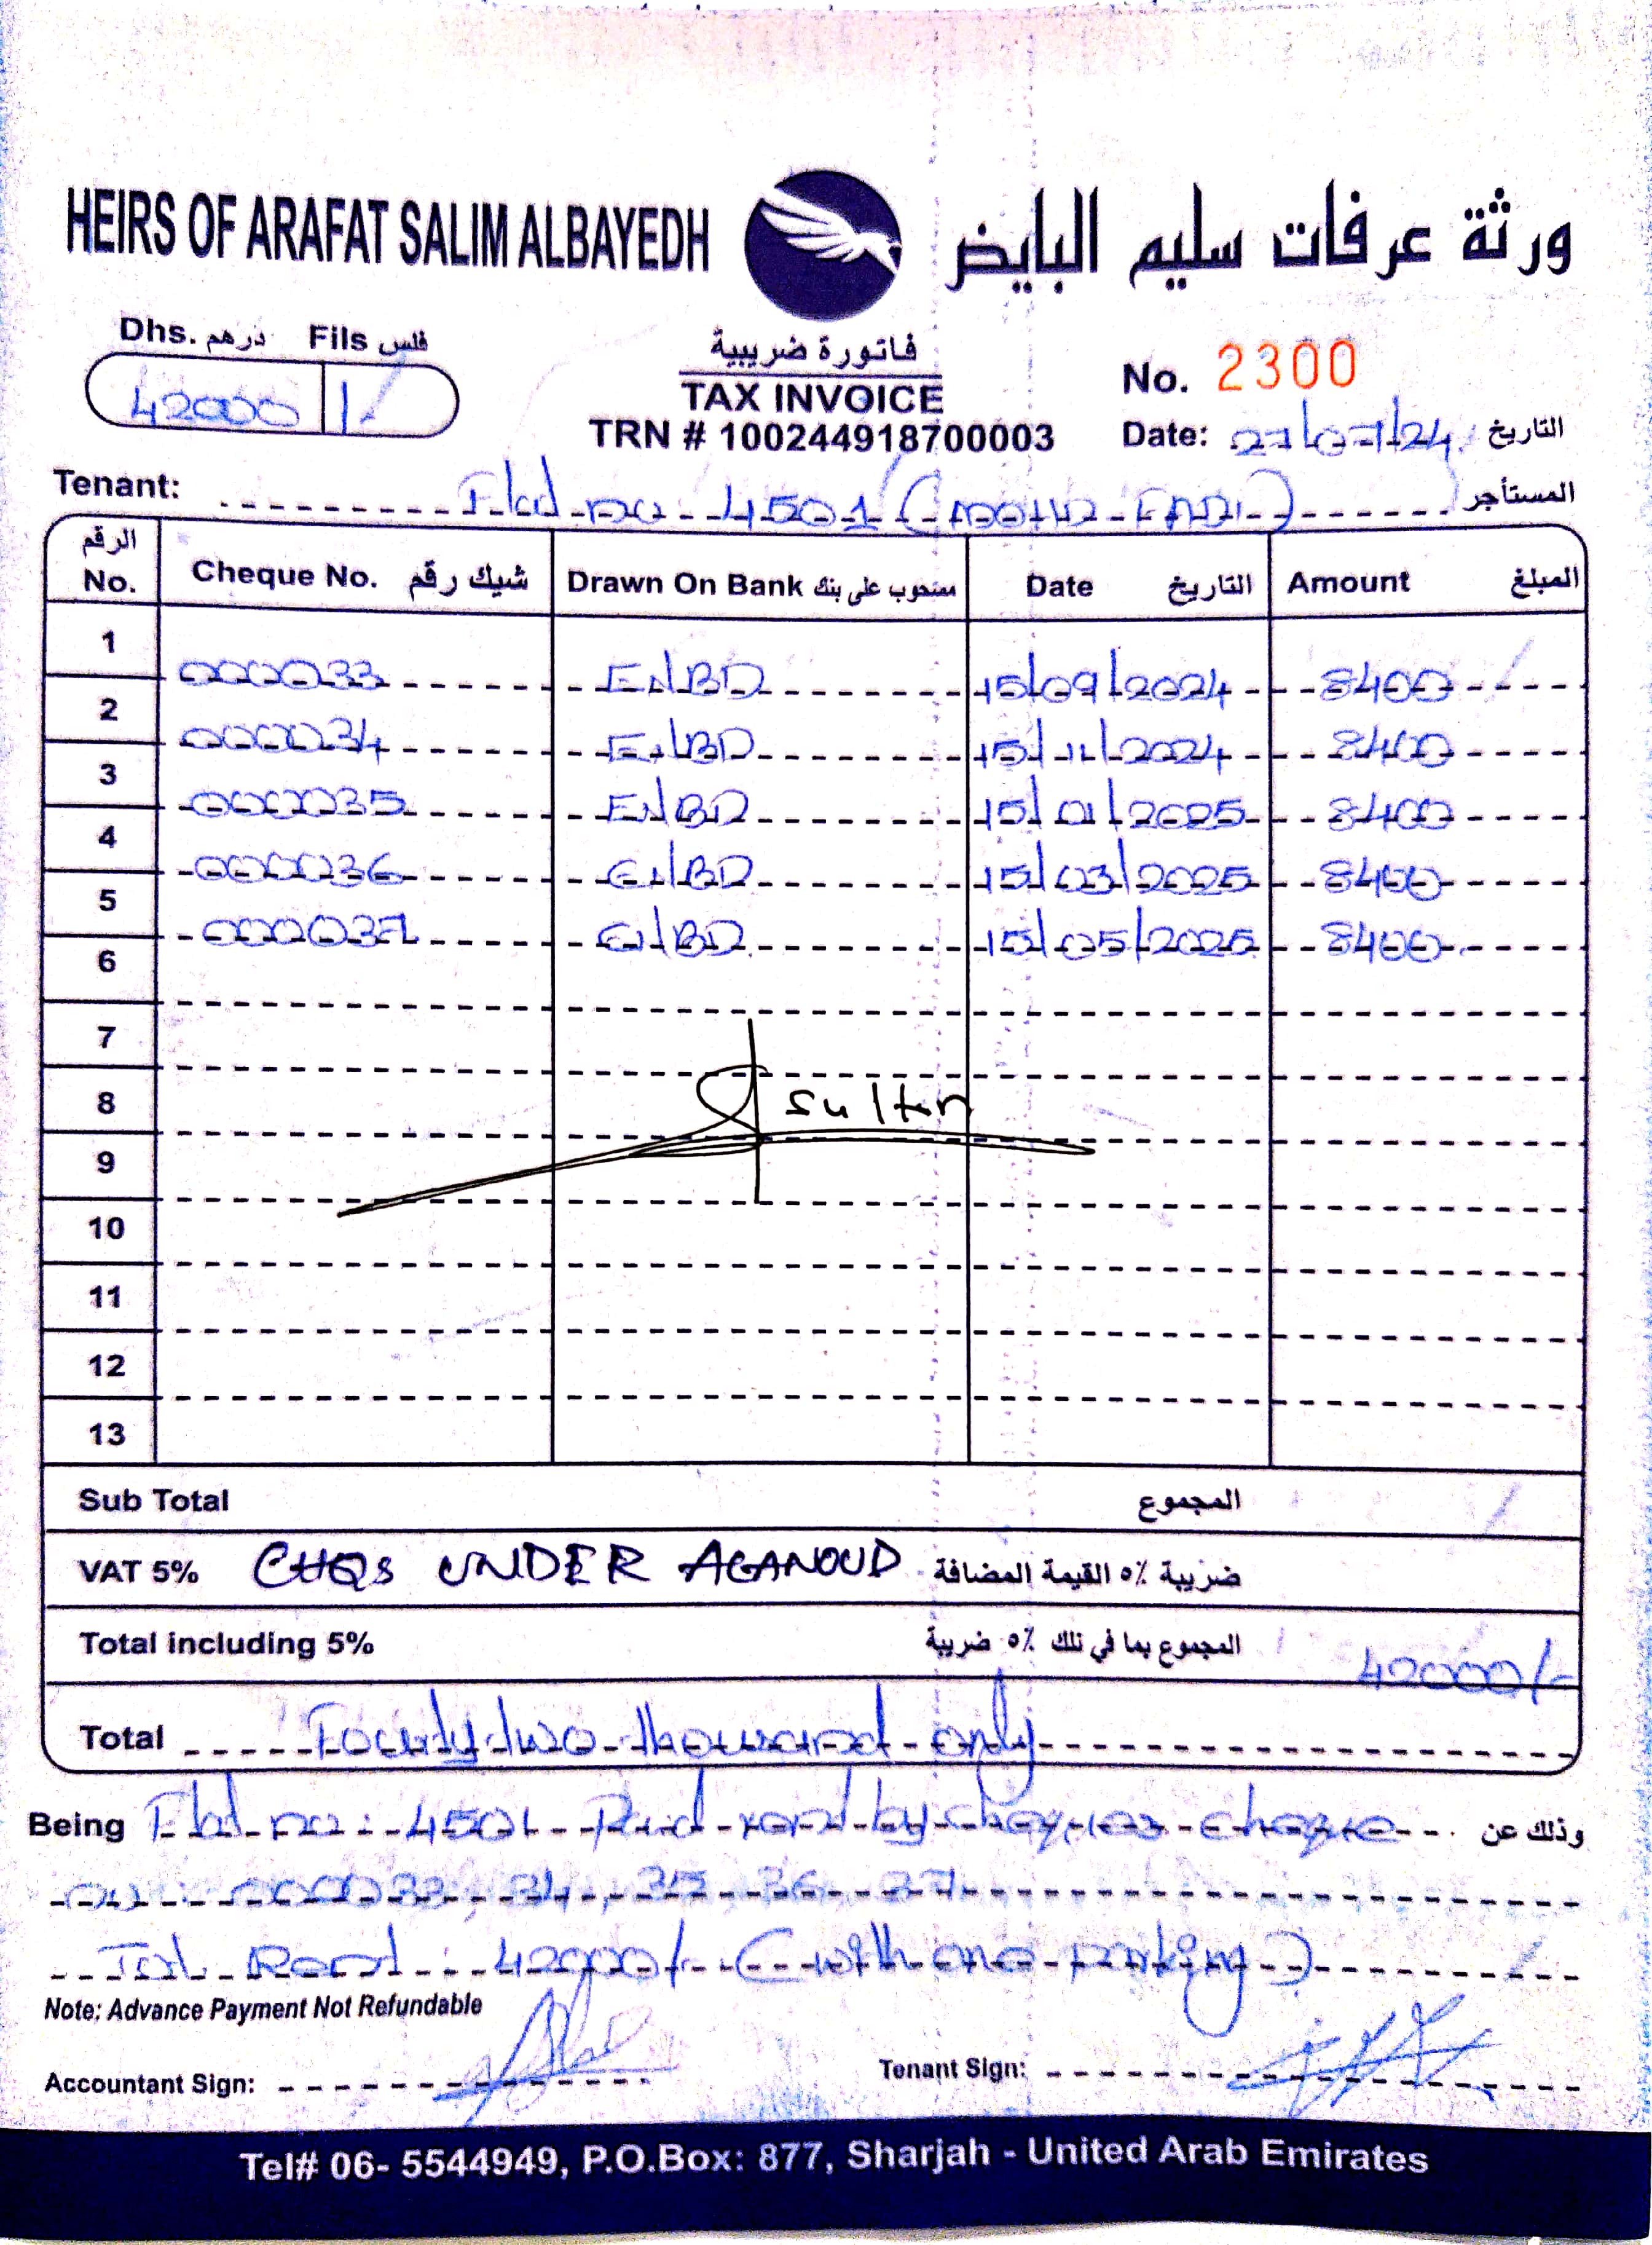 HEIRS OF ARAFAT SALIM ALBAYEDH ورثة عرفات سليم البايض
Dhs. درهم Fils فلس
42000 /-
فاتورة ضريبية
TAX INVOICE
TRN # 100244918700003
No. 2300
Date: 27/07/24 التاريخ
Tenant: Flat no 4501 ( المستأجر
الرقم No. Cheque No. شيك رقم Drawn On Bank مسحوب على بنك Date التاريخ Amount المبلغ
1 000033 ENBD 15/09/2024 8400
2 000034 ENBD 15/11/2024 8400
3 000035 ENBD 15/01/2025 8400
4 000036 ENBD 15/03/2025 8400
5 000037 ENBD 15/05/2025 8400
6
7
8 Sultan
9
10
11
12
13
Sub Total المجموع
VAT 5% CHQS UNDER ALANOUD ضريبة ٥٪ القيمة المضافة
Total including 5% المجموع بما في ذلك ٥٪ ضريبة 42000/-
Total Fourty two thousand only
Being Flat no: 4501 Paid rent by cheques cheque وذلك عن
no: 000033, 34, 35 36 37
Total Rent : 42000/- (with one parking)
Note: Advance Payment Not Refundable
Accountant Sign: Tenant Sign:
Tel# 06- 5544949, P.O.Box: 877, Sharjah - United Arab Emirates